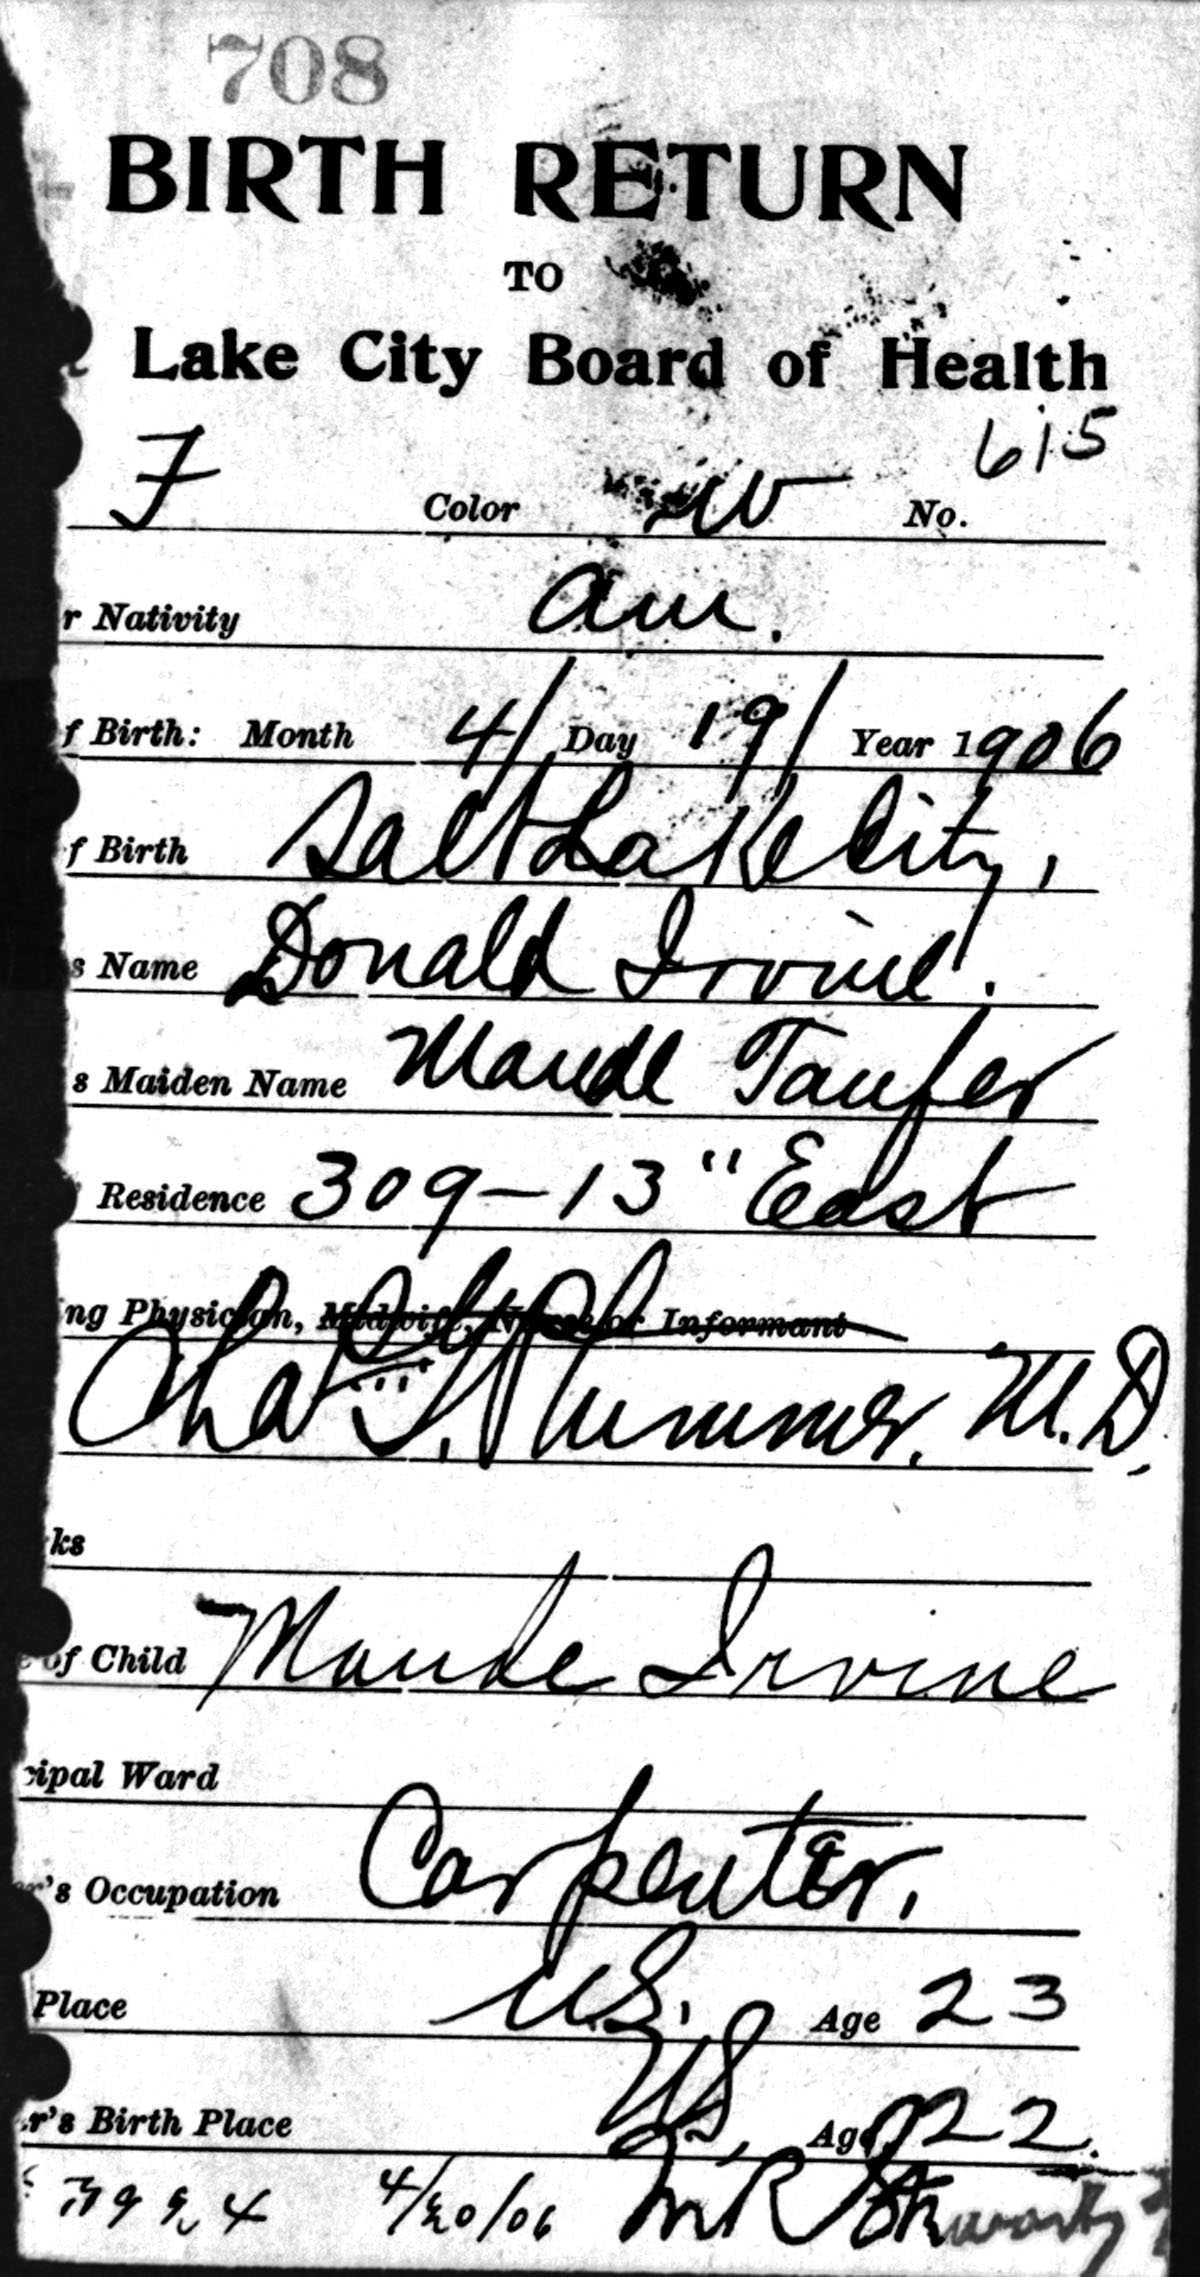 708
BIRTH RETURN
TO
Lake City Board of Health
615
F Color W No.
r Nativity am.
f Birth: Month 4/ Day 19/ Year 1906
f Birth Salt Lake City,
s Name Donald Irvine.
s Maiden Name Maude Taufer
Residence 309-13" East
ng Physician, Midwife, Nurse or Informant
Chas. T. Plummer, M.D.
ks
of Child Maude Irvine
cipal Ward
r's Occupation Carpenter.
Place U.S. Age 23
r's Birth Place U.S. Age 22.
4/20/06